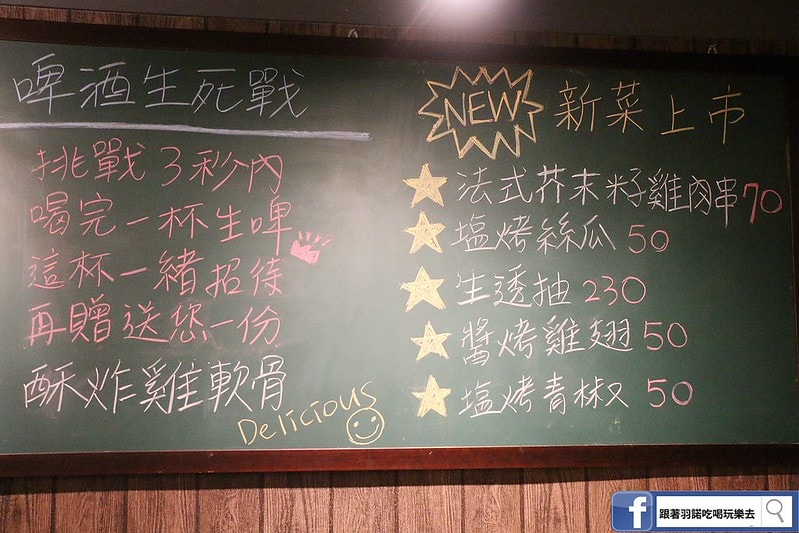 啤酒生死戰
挑戰3秒內
喝完一杯生啤
這杯一緒招待
再贈送您一份
酥炸雞軟骨
Delicious
NEW 新菜上市
法式芥末籽雞肉串 70
塩烤絲瓜 50
生透抽 230
醬烤雞翅 50
塩烤青椒又 50
跟著羽諾吃喝玩樂去